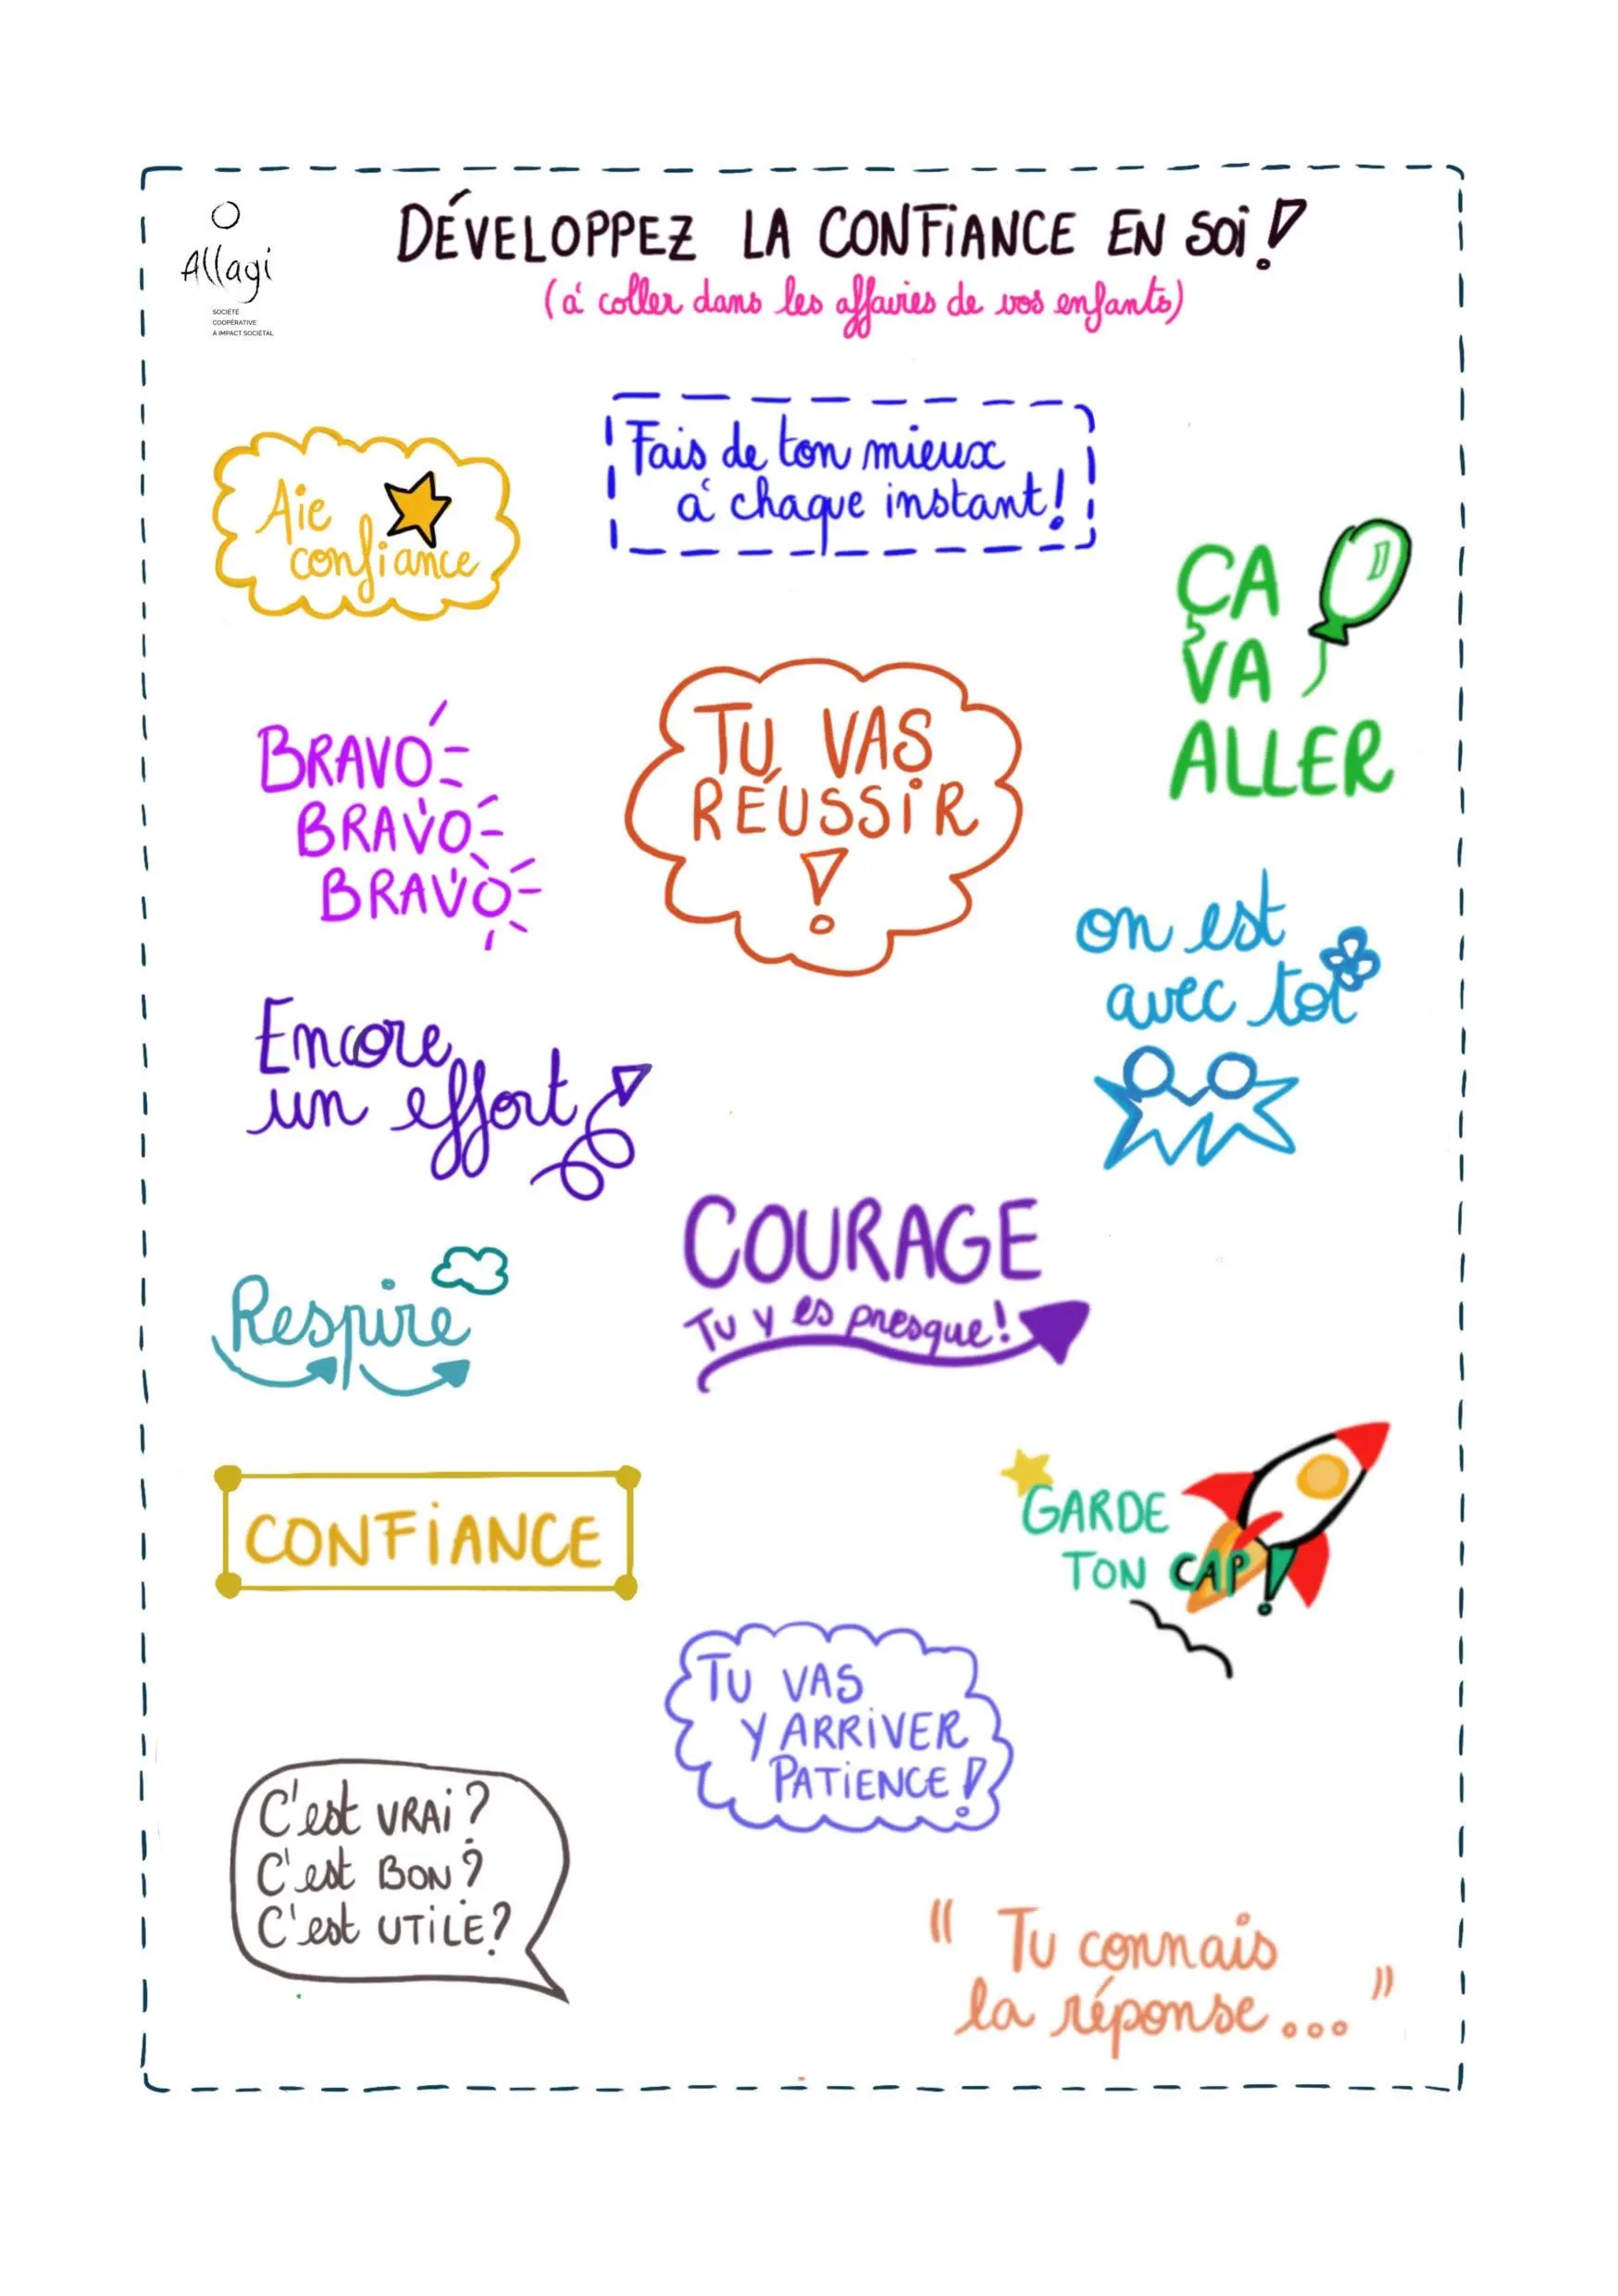 Allagi
SOCIÉTÉ
COOPÉRATIVE
À IMPACT SOCIÉTAL
DÉVELOPPEZ LA CONFIANCE EN SOI !
(à coller dans les affavies de vos enfants)
Fais de ton mieux
à chaque instant!
Aie
confiance
ÇA
VA
ALLER
TU VAS
RÉUSSIR
!
BRAVO
BRAVO
BRAVO
on est
avec toi
Encore
un effort
COURAGE
Tu y es presque!
Respire
GARDE
TON CAP !
CONFIANCE
TU VAS
Y ARRIVER
PATIENCE !
C'est VRAI ?
C'est BON ?
C'est UTILE ?
" Tu connais
la réponse ... "